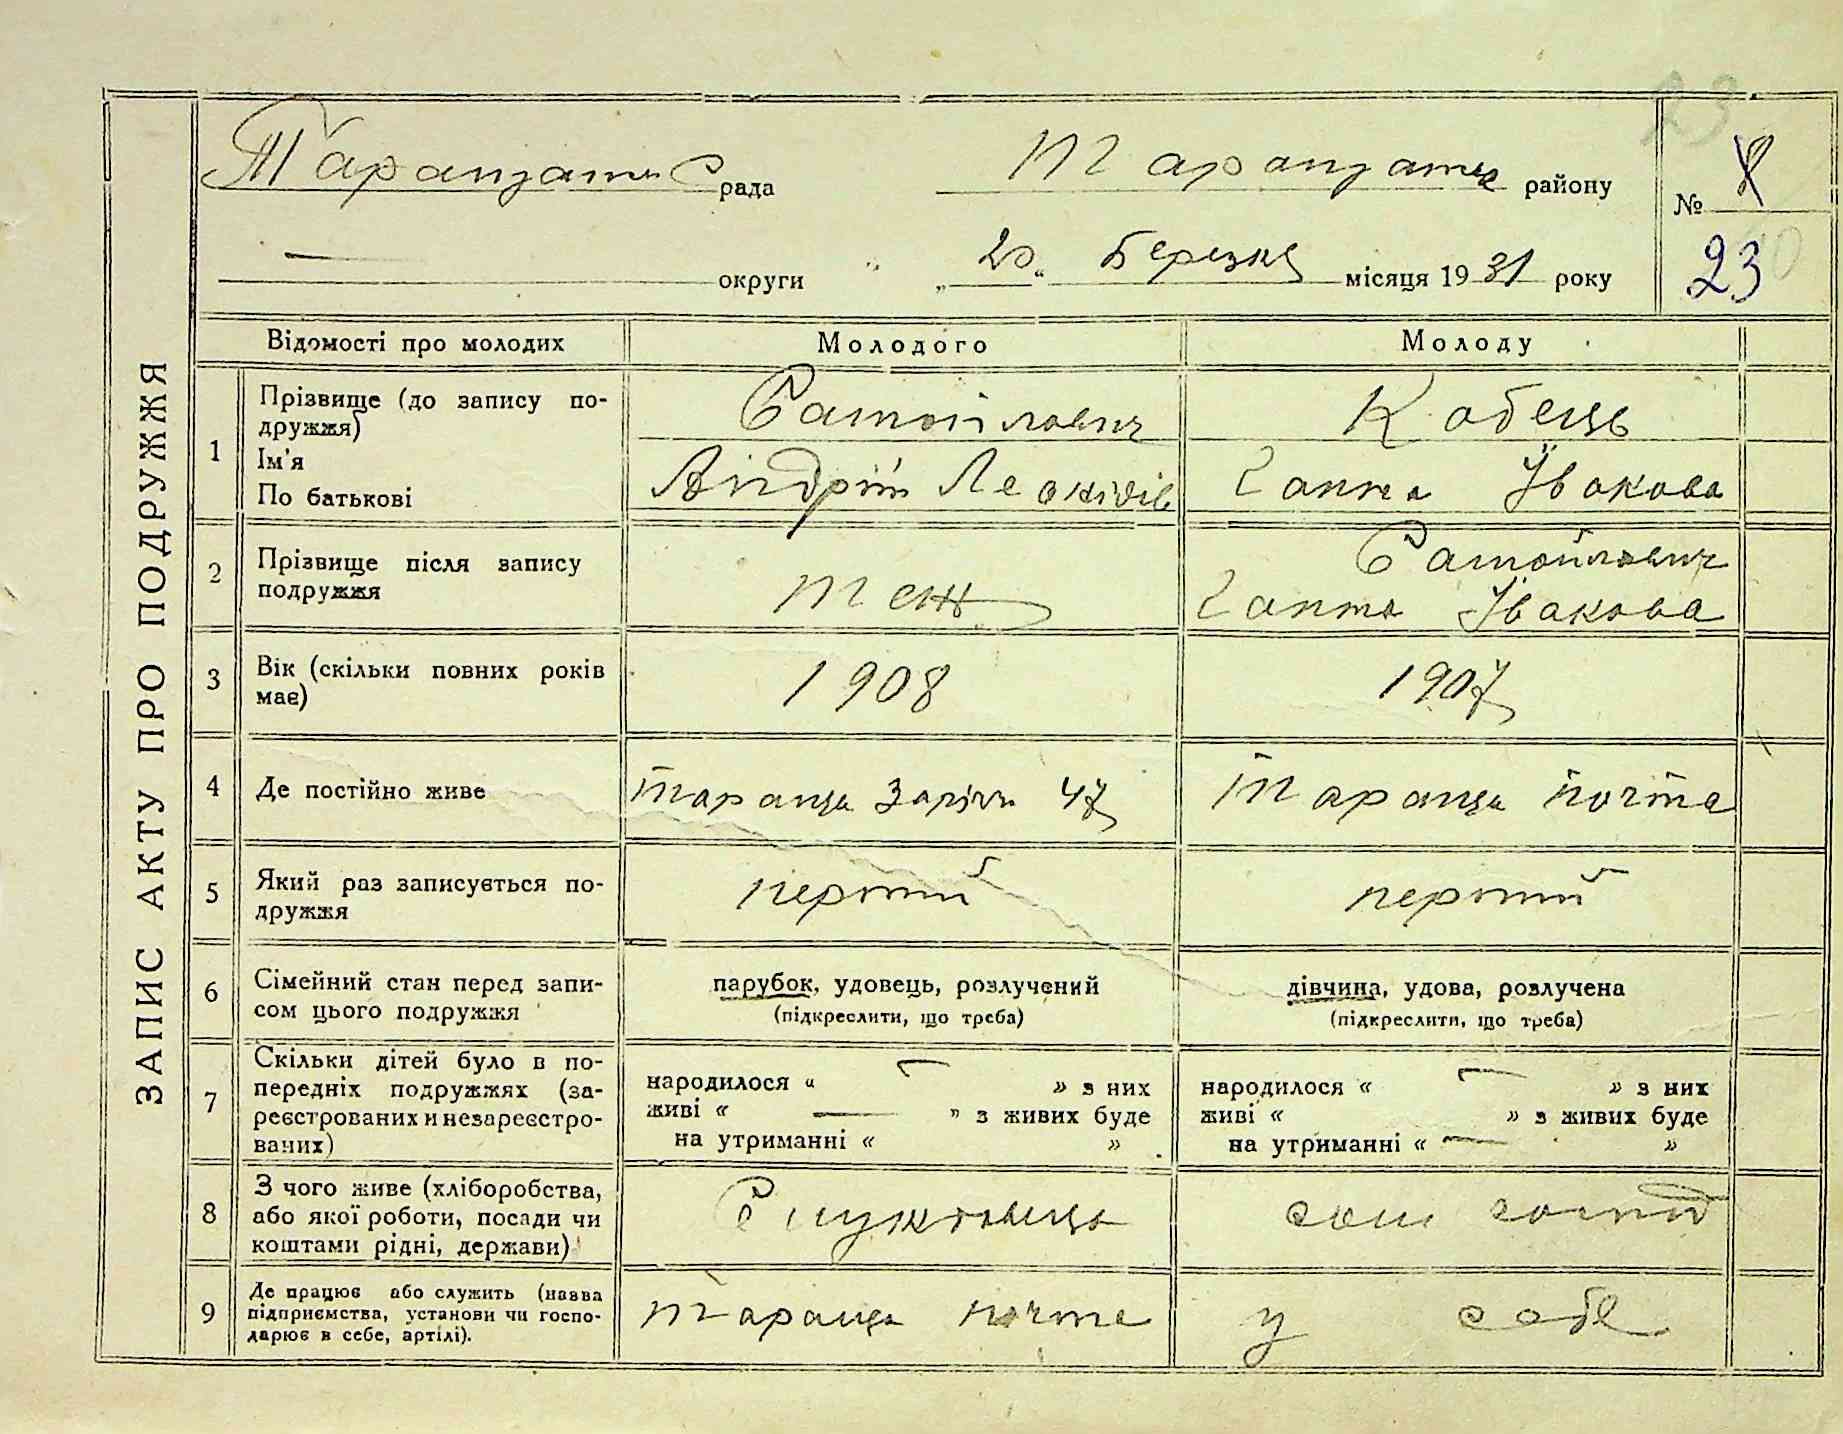 23
ЗАПИС АКТУ ПРО ПОДРУЖЖЯ
рада
району
№
округи
„20“ Березня місяця 1931 року
23
Відомості про молодих
Молодого
Молоду
1
Прізвище (до запису по-
дружжя)
Ім'я
По батькові
Самойлович
Андрій Леонідів
Кобець
Ганна Івакова
2
Прізвище після запису
подружжя
теж
Самойлович
Ганна Івакова
3
Вік (скільки повних років
має)
1908
1907
4
Де постійно живе
Тараща Заріччя 47
Тараща почта
5
Який раз записується по-
дружжя
перший
перший
6
Сімейний стан перед запи-
сом цього подружжя
парубок, удовець, розлучений
(підкреслити, що треба)
дівчина, удова, розлучена
(підкреслити, що треба)
7
Скільки дітей було в по-
передніх подружжях (за-
реєстрованих и незареєстро-
ваних)
народилося “ » з них
живі “ » з живих буде
на утриманні “ »
народилося “ » з них
живі “ » з живих буде
на утриманні “ »
8
З чого живе (хліборобства,
або якої роботи, посади чи
коштами рідні, держави)
Службовець
9
Де працює або служить (назва
підприємства, установи чи госпо-
дарює в себе, артілі).
Тараща почта
у себе